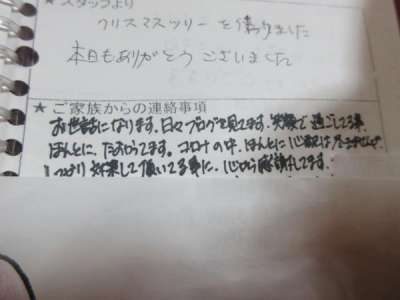 ★ スタッフより
クリスマスツリーを飾りました
本日もありがとうございました
★ ご家族からの連絡事項
お世話になります。日々ブログを見てます。笑顔で過ごしてる事
ほんとに、たすかってます。コロナの中、ほんとに心配は尽きませんが、
しっかり対策して頂いてる事に、心から感謝してます。